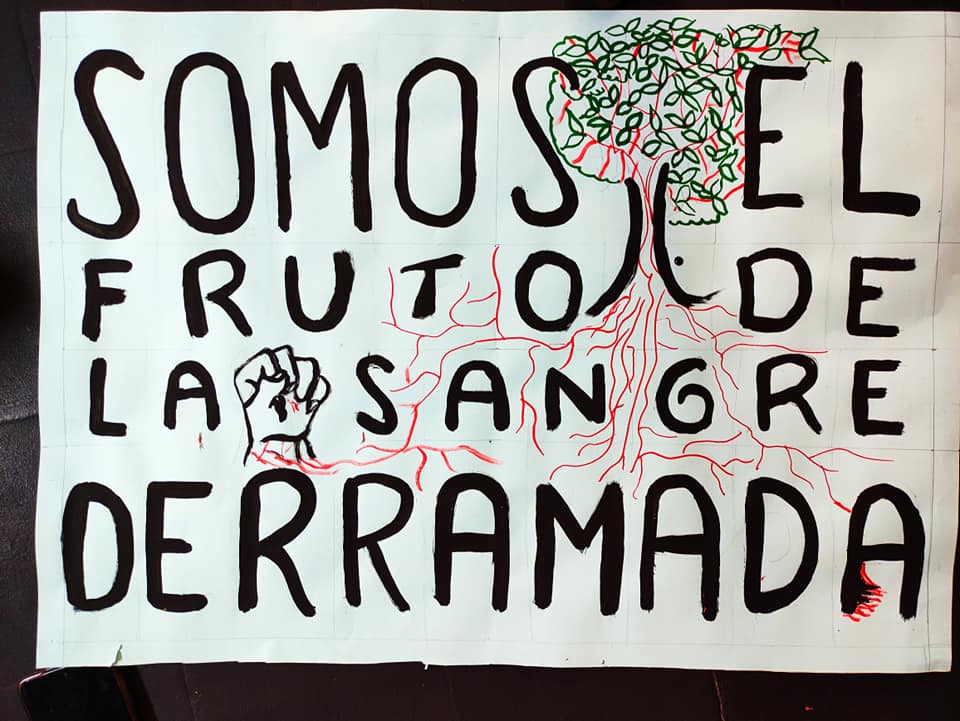 SOMOS EL
FRUTO DE
LA SANGRE
DERRAMADA